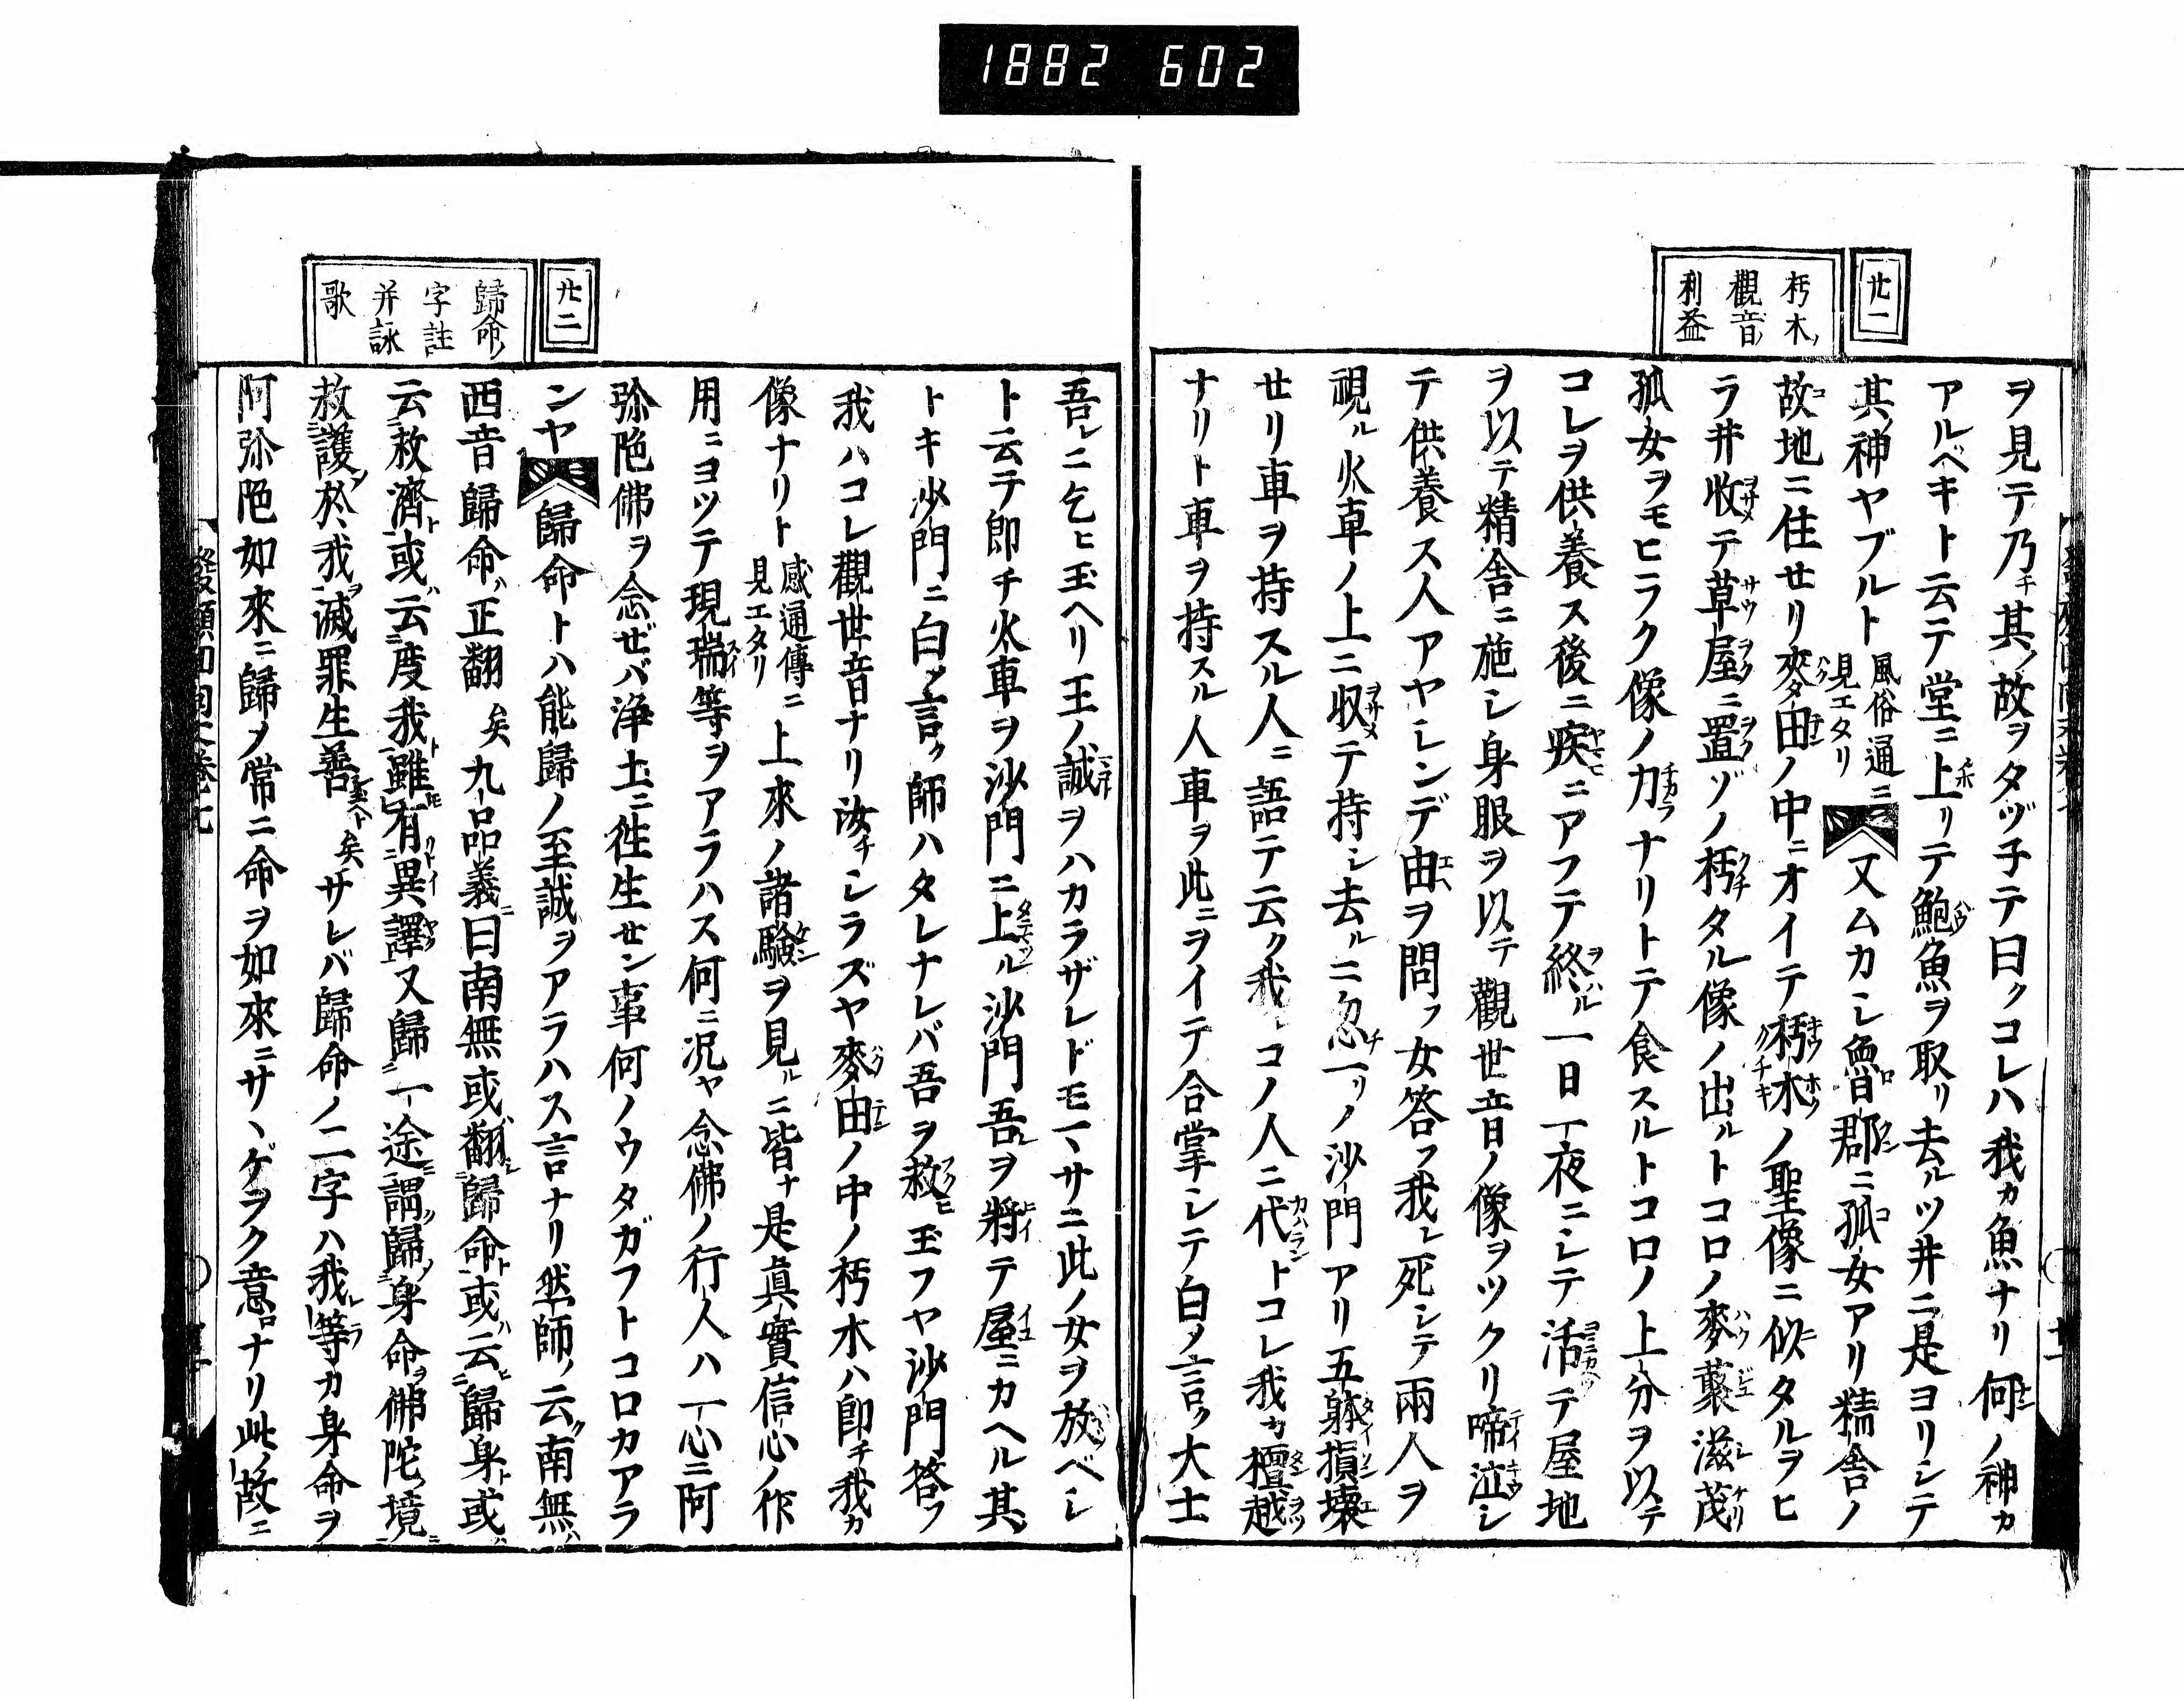 1882 602
廿一
朽木ノ
觀音ノ
利益
ヲ見テ乃チ其ノ故ヲタヅ子テ曰クコレハ我カ魚ナリ何ノ神カ
アルベキト云テ堂ニ上リテ鮑魚ヲ取リ去ルツ井ニ是ヨリシテ
其ノ神ヤブルト風俗通ニ見エタリ又ムカシ魯郡ニ孤女アリ精舎ノ
故地ニ住セリ麥田ノ中ニオイテ朽木ノ聖像ニ似タルヲヒ
ラ井收テ草屋ニ置ゾノ朽タル像ノ出ルトコロノ麥蘖滋茂
孤女ヲモヒラク像ノ力ナリトテ食スルトコロノ上分ヲ以テ
コレヲ供養ス後ニ疾ニアフテ終ル一日一夜ニシテ活テ屋地
ヲ以テ精舎ニ施シ身服ヲ以テ觀世音ノ像ヲツクリ啼泣シ
テ供養ス人アヤシンデ由ヲ問フ女答フ我レ死シテ兩人ヲ
視ル火車ノ上ニ収テ持シ去ルニ忽チ一リノ沙門アリ五躰損壊
セリ車ヲ持スル人ニ語テ云ク我レコノ人ニ代トコレ我カ檀越
ナリト車ヲ持スル人車ヲ此ニヲイテ合掌シテ白メ言ク大士
廿二
歸命ノ
字註
并詠
歌
吾レニ乞ヒ玉ヘリ王ノ誠ヲハカラザレドモマサニ此ノ女ヲ放ベシ
ト云テ即チ火車ヲ沙門ニ上ル沙門吾ヲ將テ屋ニカヘル其
トキ沙門ニ白メ言ク師ハタレナレバ吾ヲ救ヒ玉フヤ沙門答フ
我ハコレ觀世音ナリ汝チシラズヤ麥田ノ中ノ朽木ハ即チ我カ
像ナリト感通傳ニ見エタリ上來ノ諸驗ヲ見ルニ皆ナ是眞實信心ノ作
用ニヨツテ現瑞等ヲアラハス何ニ况ヤ念佛ノ行人ハ一心ニ阿
弥陀佛ヲ念ゼバ浄土ニ徃生セン事何ノウタガフトコロカアラ
ンヤ歸命トハ能歸ノ至誠ヲアラハス言ナリ然師ノ云ク南無ハ
西音歸命ハ正翻矣九品義ニ曰南無或ハ翻シ歸命ト或ハ云ヒ歸身ト或ハ
云救濟ト或ハ云度我ト雖有異譯又歸一途ニ謂歸身命ヲ佛陀ノ境ニ
救護於我ヲ滅罪生善矣サレバ歸命ノ二字ハ我等カ身命ヲ
阿弥陀如來ニ歸メ常ニ命ヲ如來ニサヽゲヲク意ロナリ此ノ故ニ